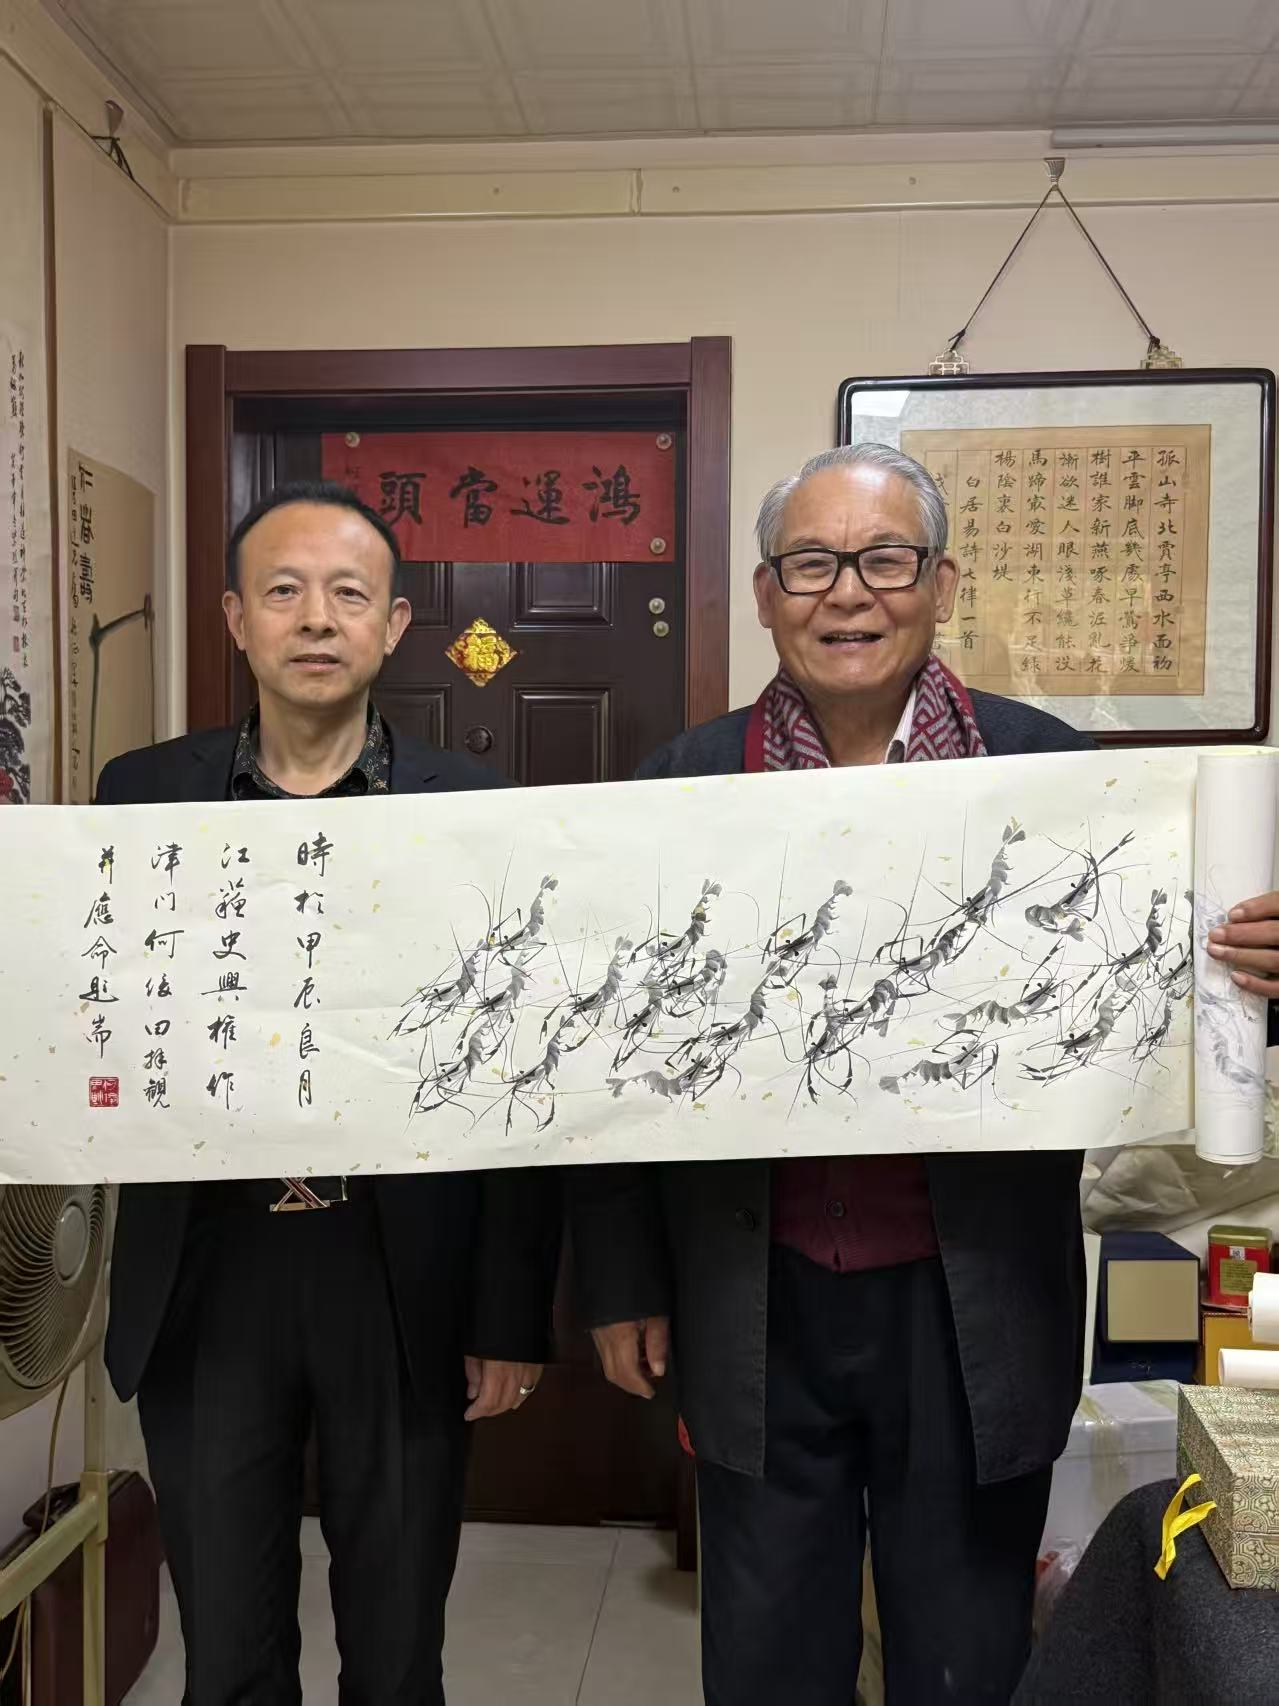 鴻運當頭
福
孤山寺北賈亭西水面初
平雲腳底幾處早鶯爭暖
樹誰家新燕啄春泥亂花
漸欲迷人眼淺草纔能沒
馬蹄最愛湖東行不足綠
楊陰裏白沙堤
白居易詩七律一首
時於甲辰良月
江蘇史興權作
津門何俊田拜觀
并應命題耑